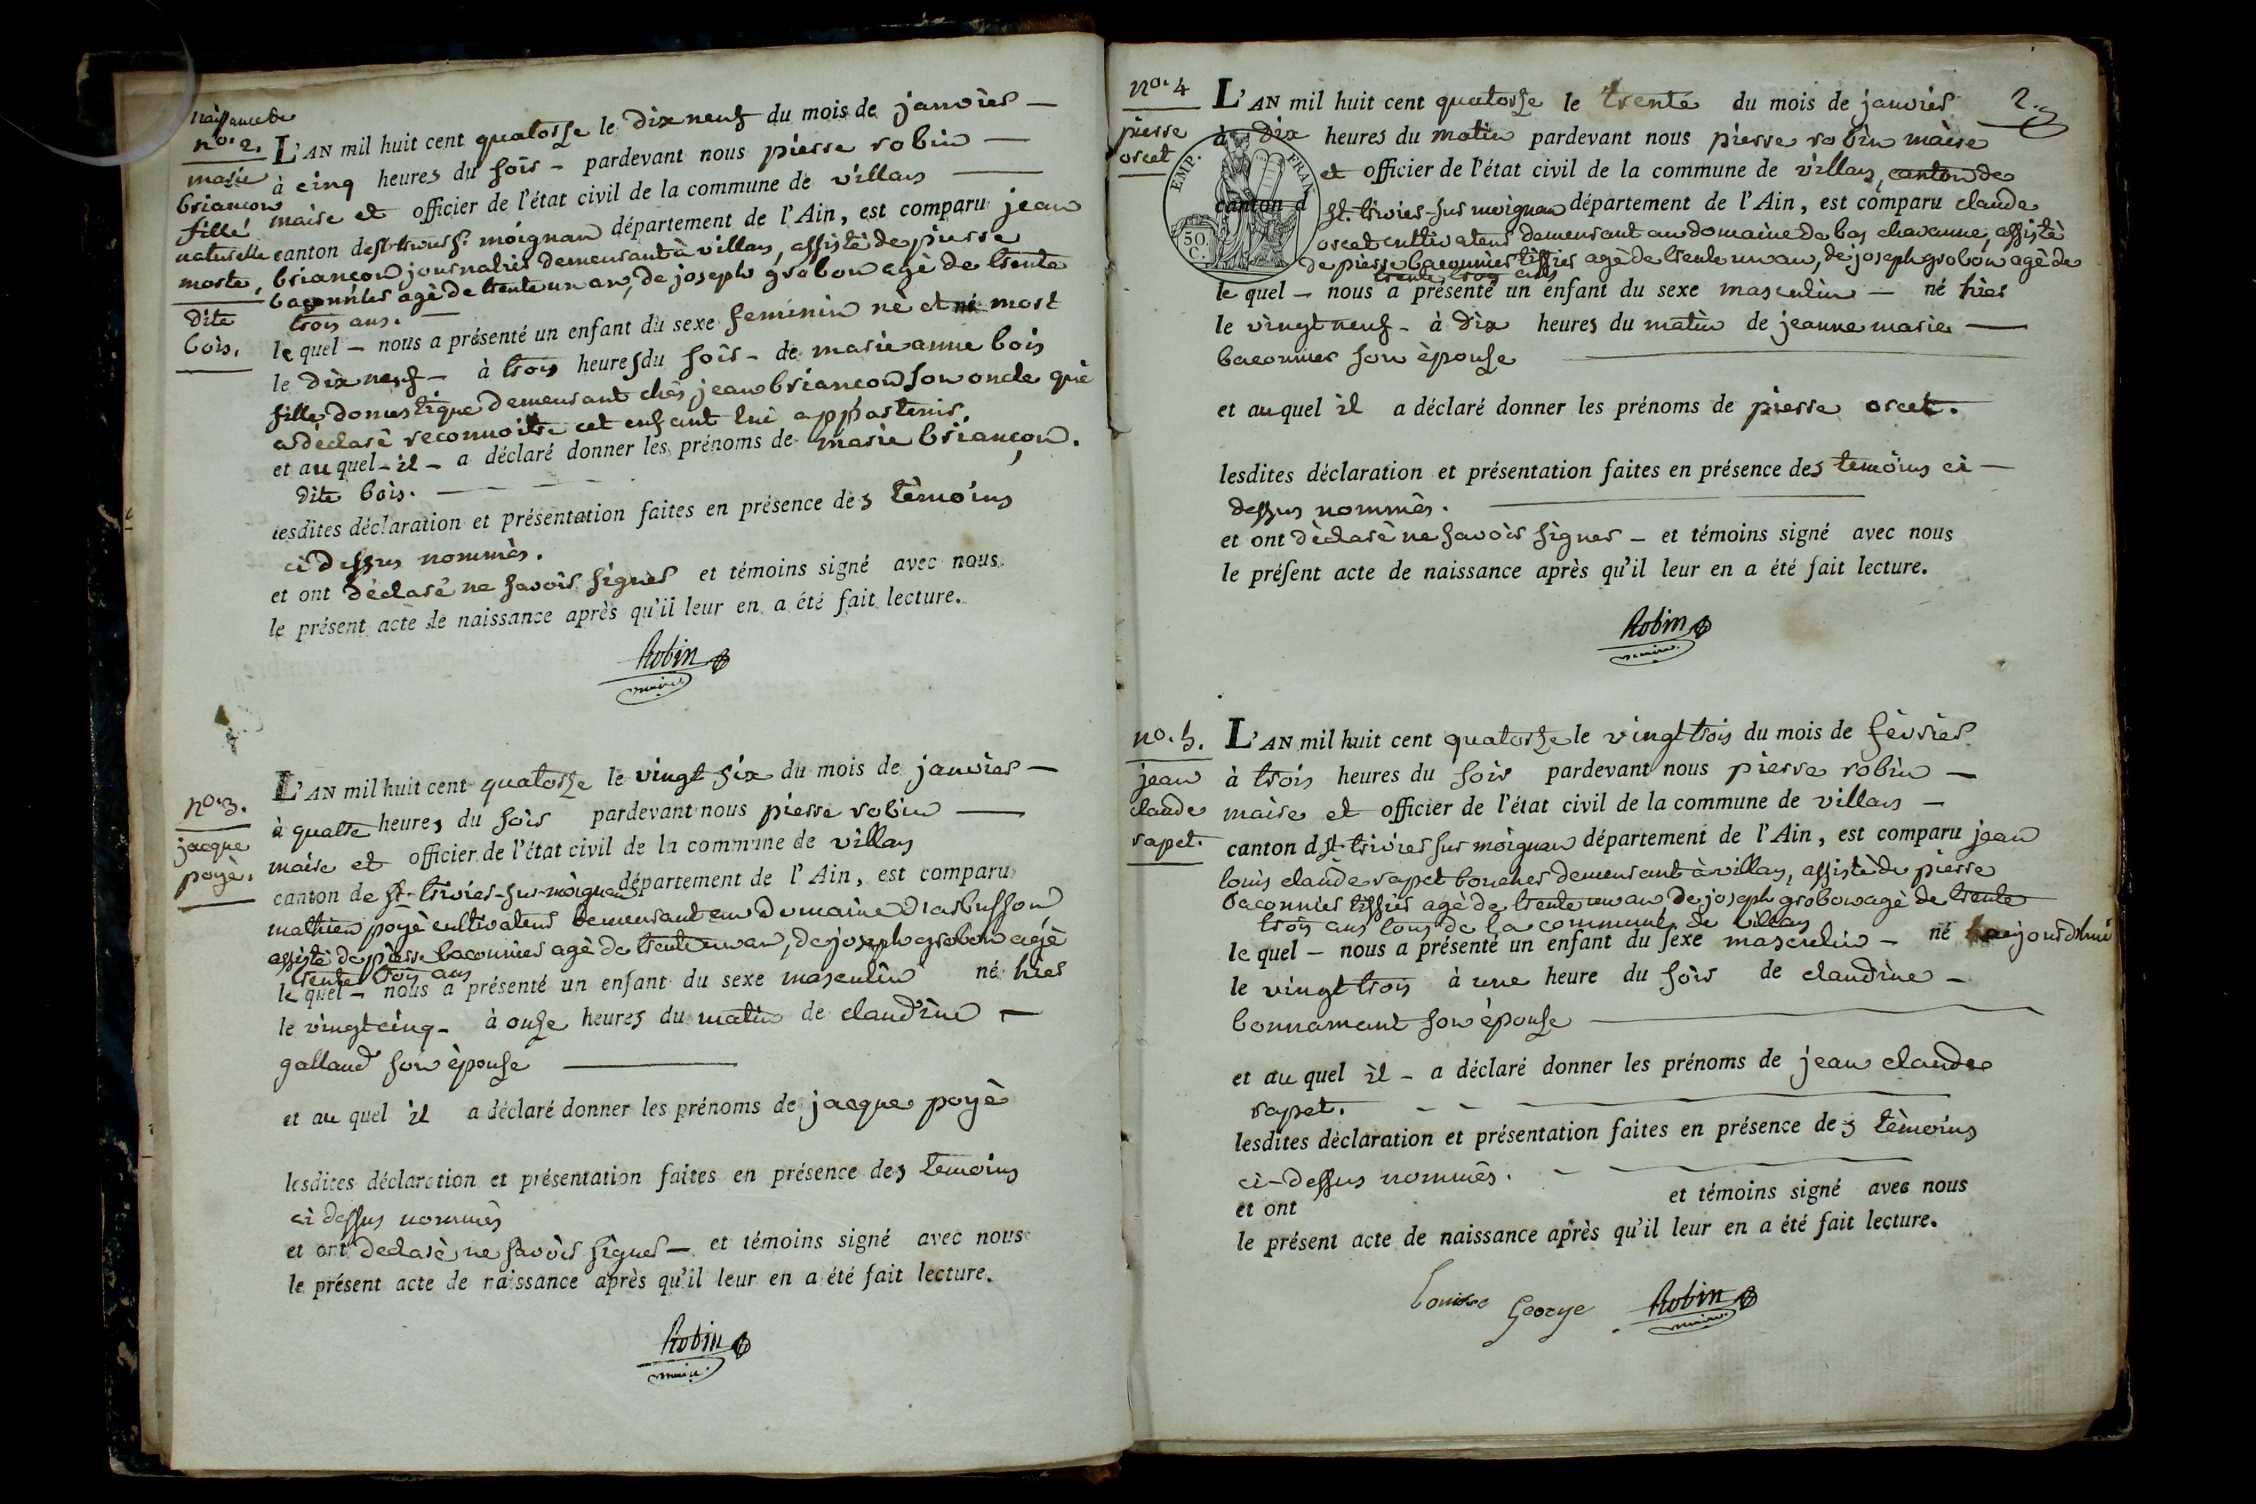 naissance de
no. 2.
marie
briancon
fille
naturelle
morte,
dite
bois.
L'AN mil huit cent quatorze le dix neuf du mois de janvier —
à cinq heures du soir – pardevant nous pierre robin —
maire et officier de l'état civil de la commune de villars —
canton de st. trivier sr. moignan département de l'Ain, est comparu jean
briançon journalier demeurant à villars, assisté de pierre
baconnier agè de trente un an, de joseph grobon agè de trente
trois ans. —
le quel – nous a présenté un enfant du sexe feminin nè et né mort
le dix neuf – à trois heures du soir – de marie anne bois
fille domestique demeurant chès jean briancon son oncle què
a dèclarè reconnoitre cet enfant lui appartenir.
et au quel – il – a déclaré donner les prénoms de marie briançon.
dite bois. —
lesdites déclaration et présentation faites en présence des tèmoins
ci dessus nommès.
et ont dèclarè ne savoir signer et témoins signé avec nous
le présent acte de naissance après qu'il leur en a été fait lecture.
Robin
maire
no. 3.
jacque
poyè.
L'AN mil huit cent quatorze le vingt six du mois de janvier —
à quatre heures du soir pardevant nous pierre robin —
maire et officier de l'état civil de la commune de villars
canton de st. trivier-sur-moignan département de l'Ain, est comparu
mathieu poyè cultivateur demeurant au domaine
assistè de pierre baconnier agè de trente un an, de joseph grobon agè
trente trois ans
le quel – nous a présenté un enfant du sexe masculin né hier
le vingt cinq – à onze heures du matin de claudine —
galland son èpouse —
et au quel il a déclaré donner les prénoms de jacque poyè
lesdites déclaration et présentation faites en présence des temoins
ci dessus nommès
et ont declarè ne savoir signer — et témoins signé avec nous
le présent acte de naissance après qu'il leur en a été fait lecture.
Robin
maire.
2.
no. 4
pierre
orcet
L'AN mil huit cent quatorze le trente du mois de janvier
à dix heures du matin pardevant nous pierre robin maire
EMP. FRAN
50.
C.
et officier de l'état civil de la commune de villars, canton de
canton d st. trivier-sur moignan département de l'Ain, est comparu claude
orcet cultivateur demeurant au domaine de bas chavanne, assistè
de pierre baconnier tissier agè de trente un an, de joseph grobon agè de
trente trois ans
le quel – nous a présenté un enfant du sexe masculin – né hier
le vingt neuf – à dix heures du matin de jeanne marie —
baconnier son èpouse —
et au quel il a déclaré donner les prénoms de pierre orcet.
lesdites déclaration et présentation faites en présence des temoins ci —
dessus nommès. —
et ont dèclarè ne savoir signer – et témoins signé avec nous
le présent acte de naissance après qu'il leur en a été fait lecture.
Robin
maire.
no. 5.
jean
claude
rapet.
L'AN mil huit cent quatorze le vingt trois du mois de fèvrier
à trois heures du soir pardevant nous pierre robin —
maire et officier de l'état civil de la commune de villars —
canton d st. trivier sur moignan département de l'Ain, est comparu jean
louis claude rapet boucher demeurant à villars, assistè de pierre
baconnier tissier agè de trente un an de joseph grobon agè de trente
trois ans tous de la commune de villars
le quel – nous a présenté un enfant du sexe masculin – né aujourdhui
le vingt trois à une heure du soir de claudine –
bonnamant son èpouse —
et au quel il – a déclaré donner les prénoms de jean claude
rapet. —
lesdites déclaration et présentation faites en présence des tèmoins
ci-dessus nommès. —
et ont et témoins signé avec nous
le présent acte de naissance après qu'il leur en a été fait lecture.
George Robin
maire